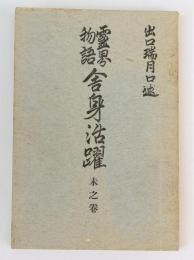 出口瑞月口述
霊界
物語
舎身活躍
未之巻